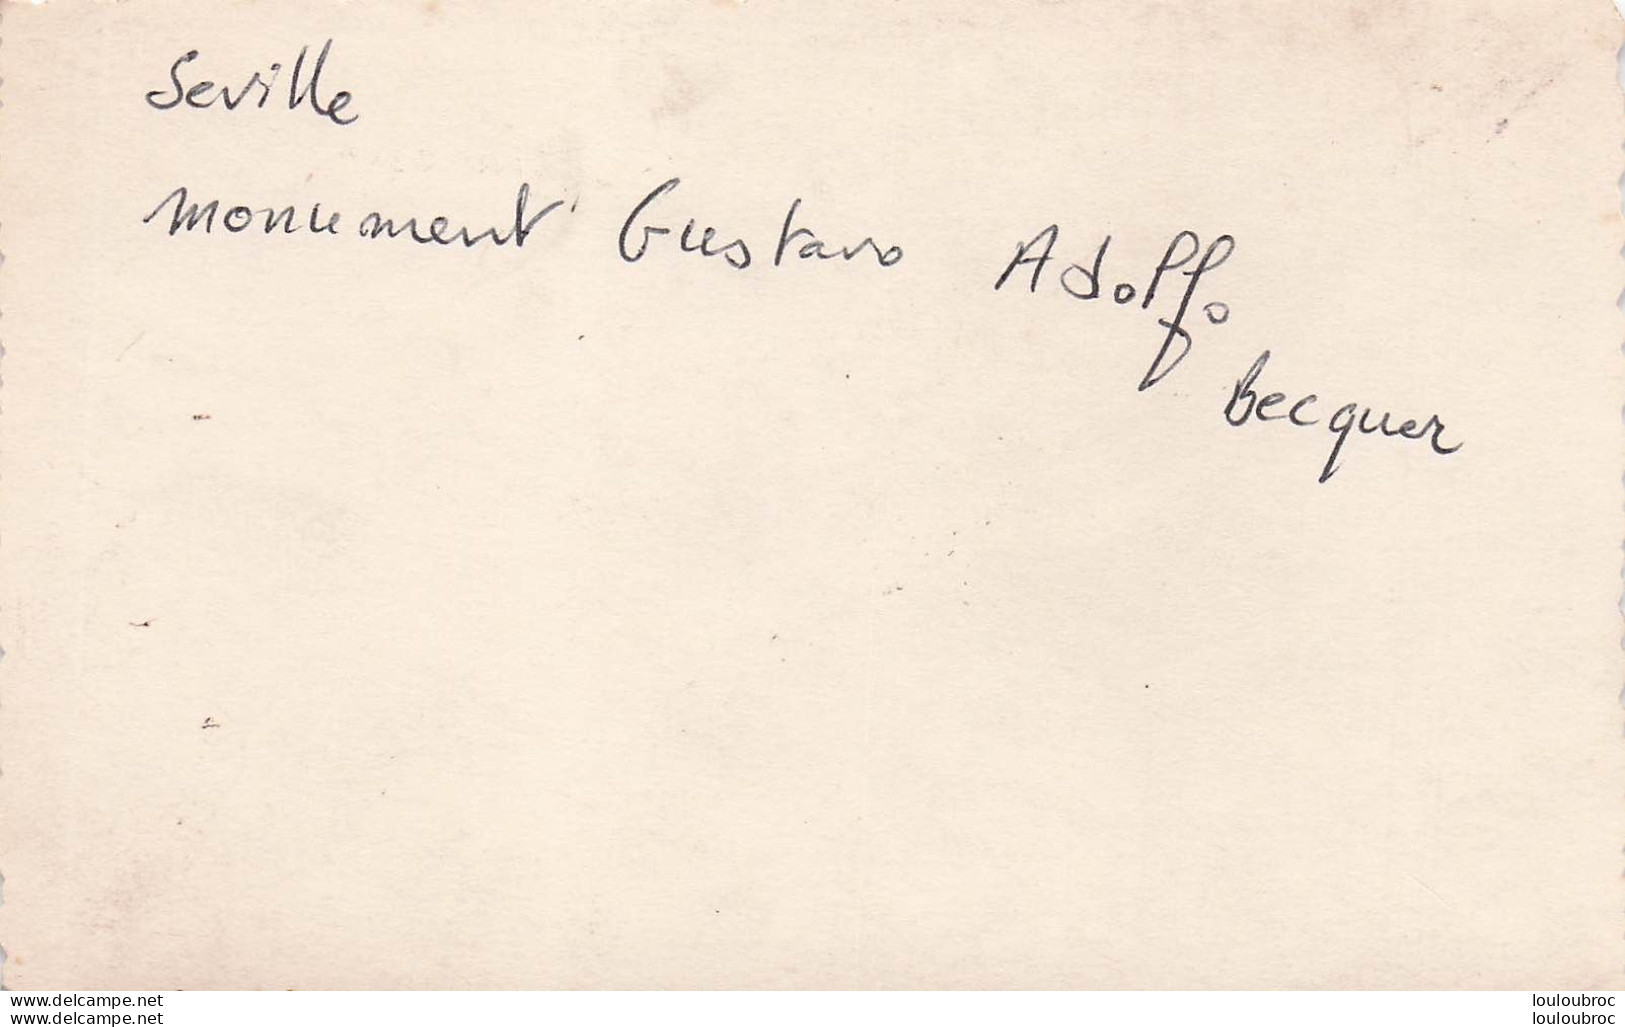 Seville
Monument Gustavo Adolfo
Becquer
www.delcampe.net louloubroc
www.delcampe.net louloubroc